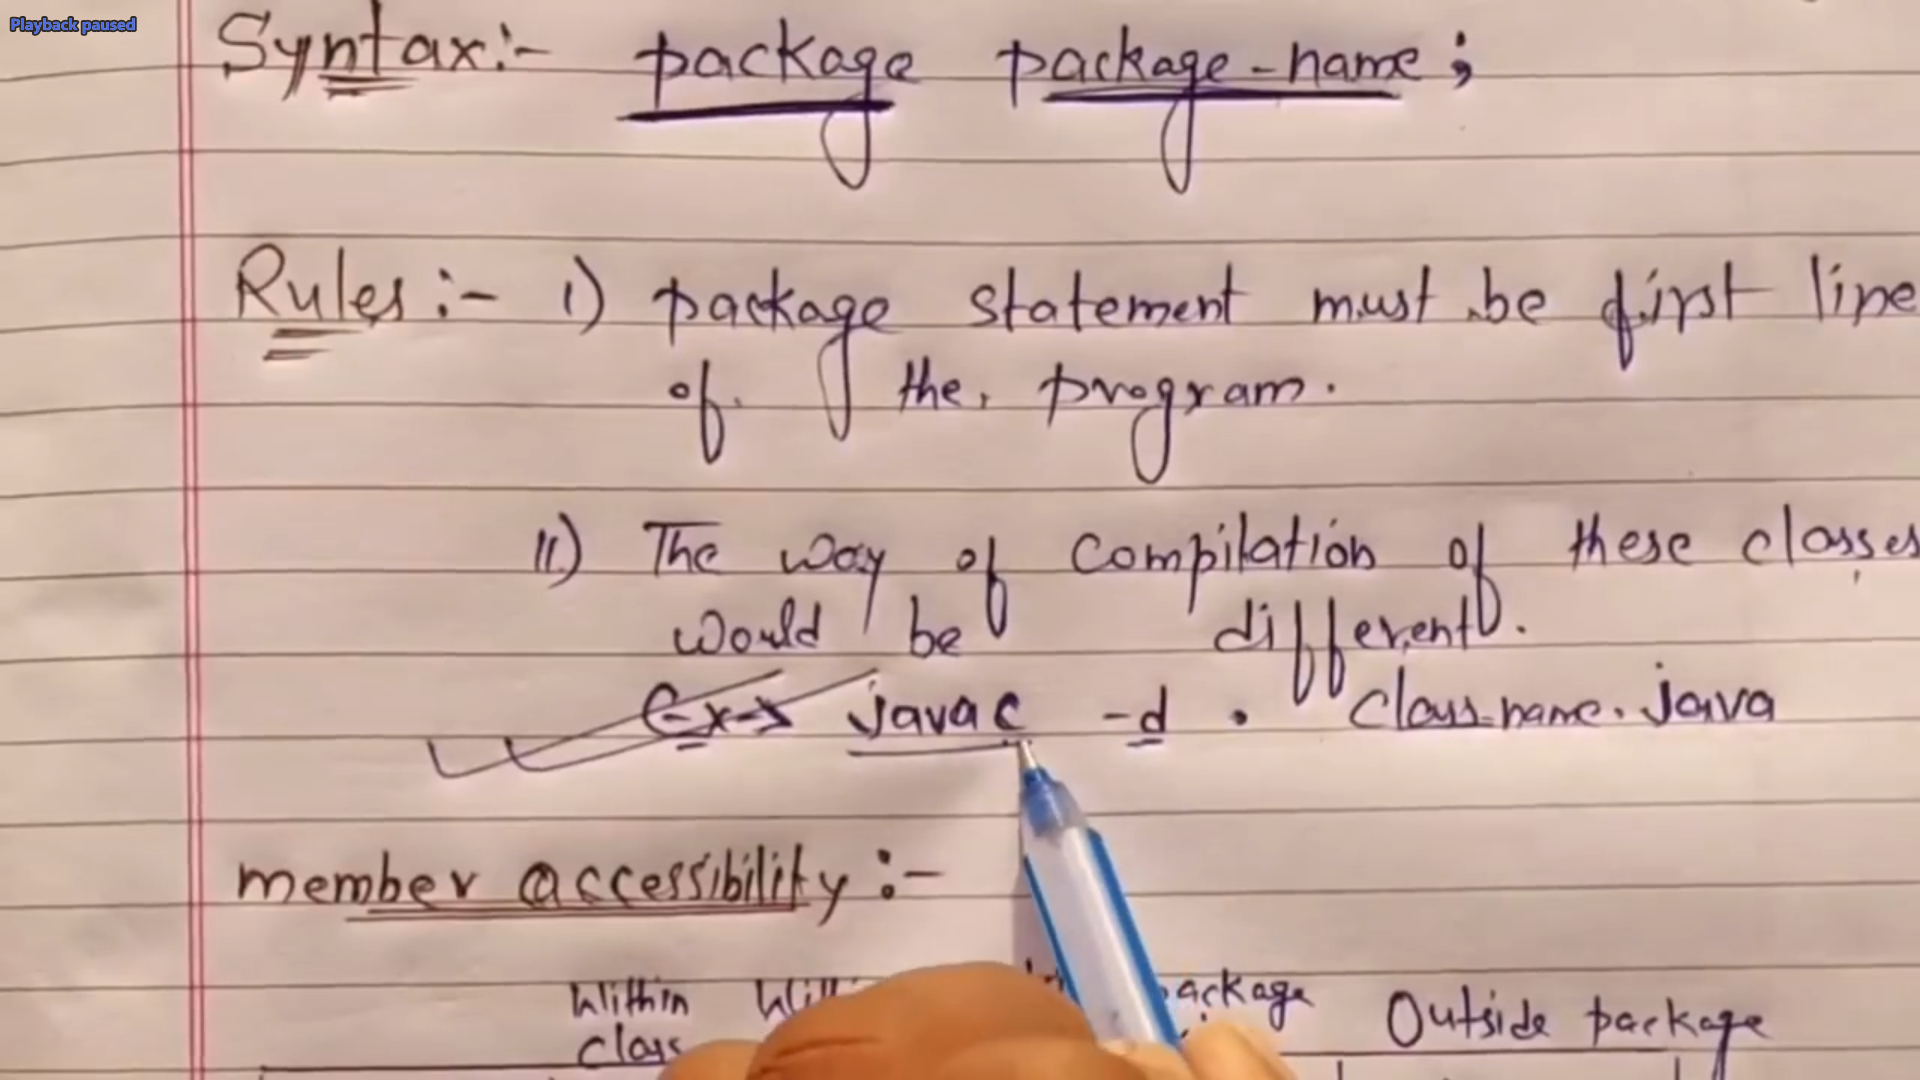 Playback paused
Syntax:- package package-name;
Rules:- i) package statement must be first line
of the program.
ii) The way of compilation of these classes
would be different.
Ex→ javac -d . Class-name.java
member accessibility:-
Within package Outside package
class